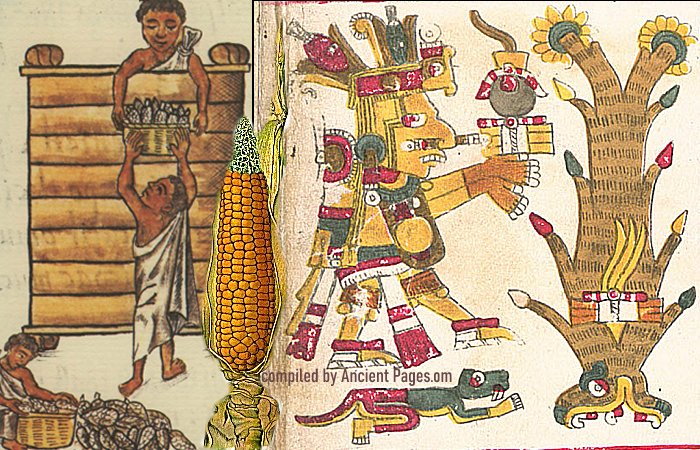 compiled by Ancient Pages.om